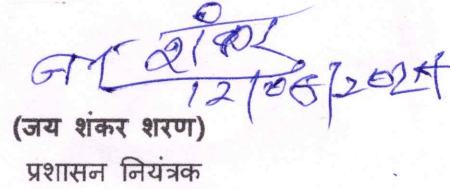 जय शंकर
12/06/2024
(जय शंकर शरण)
प्रशासन नियंत्रक